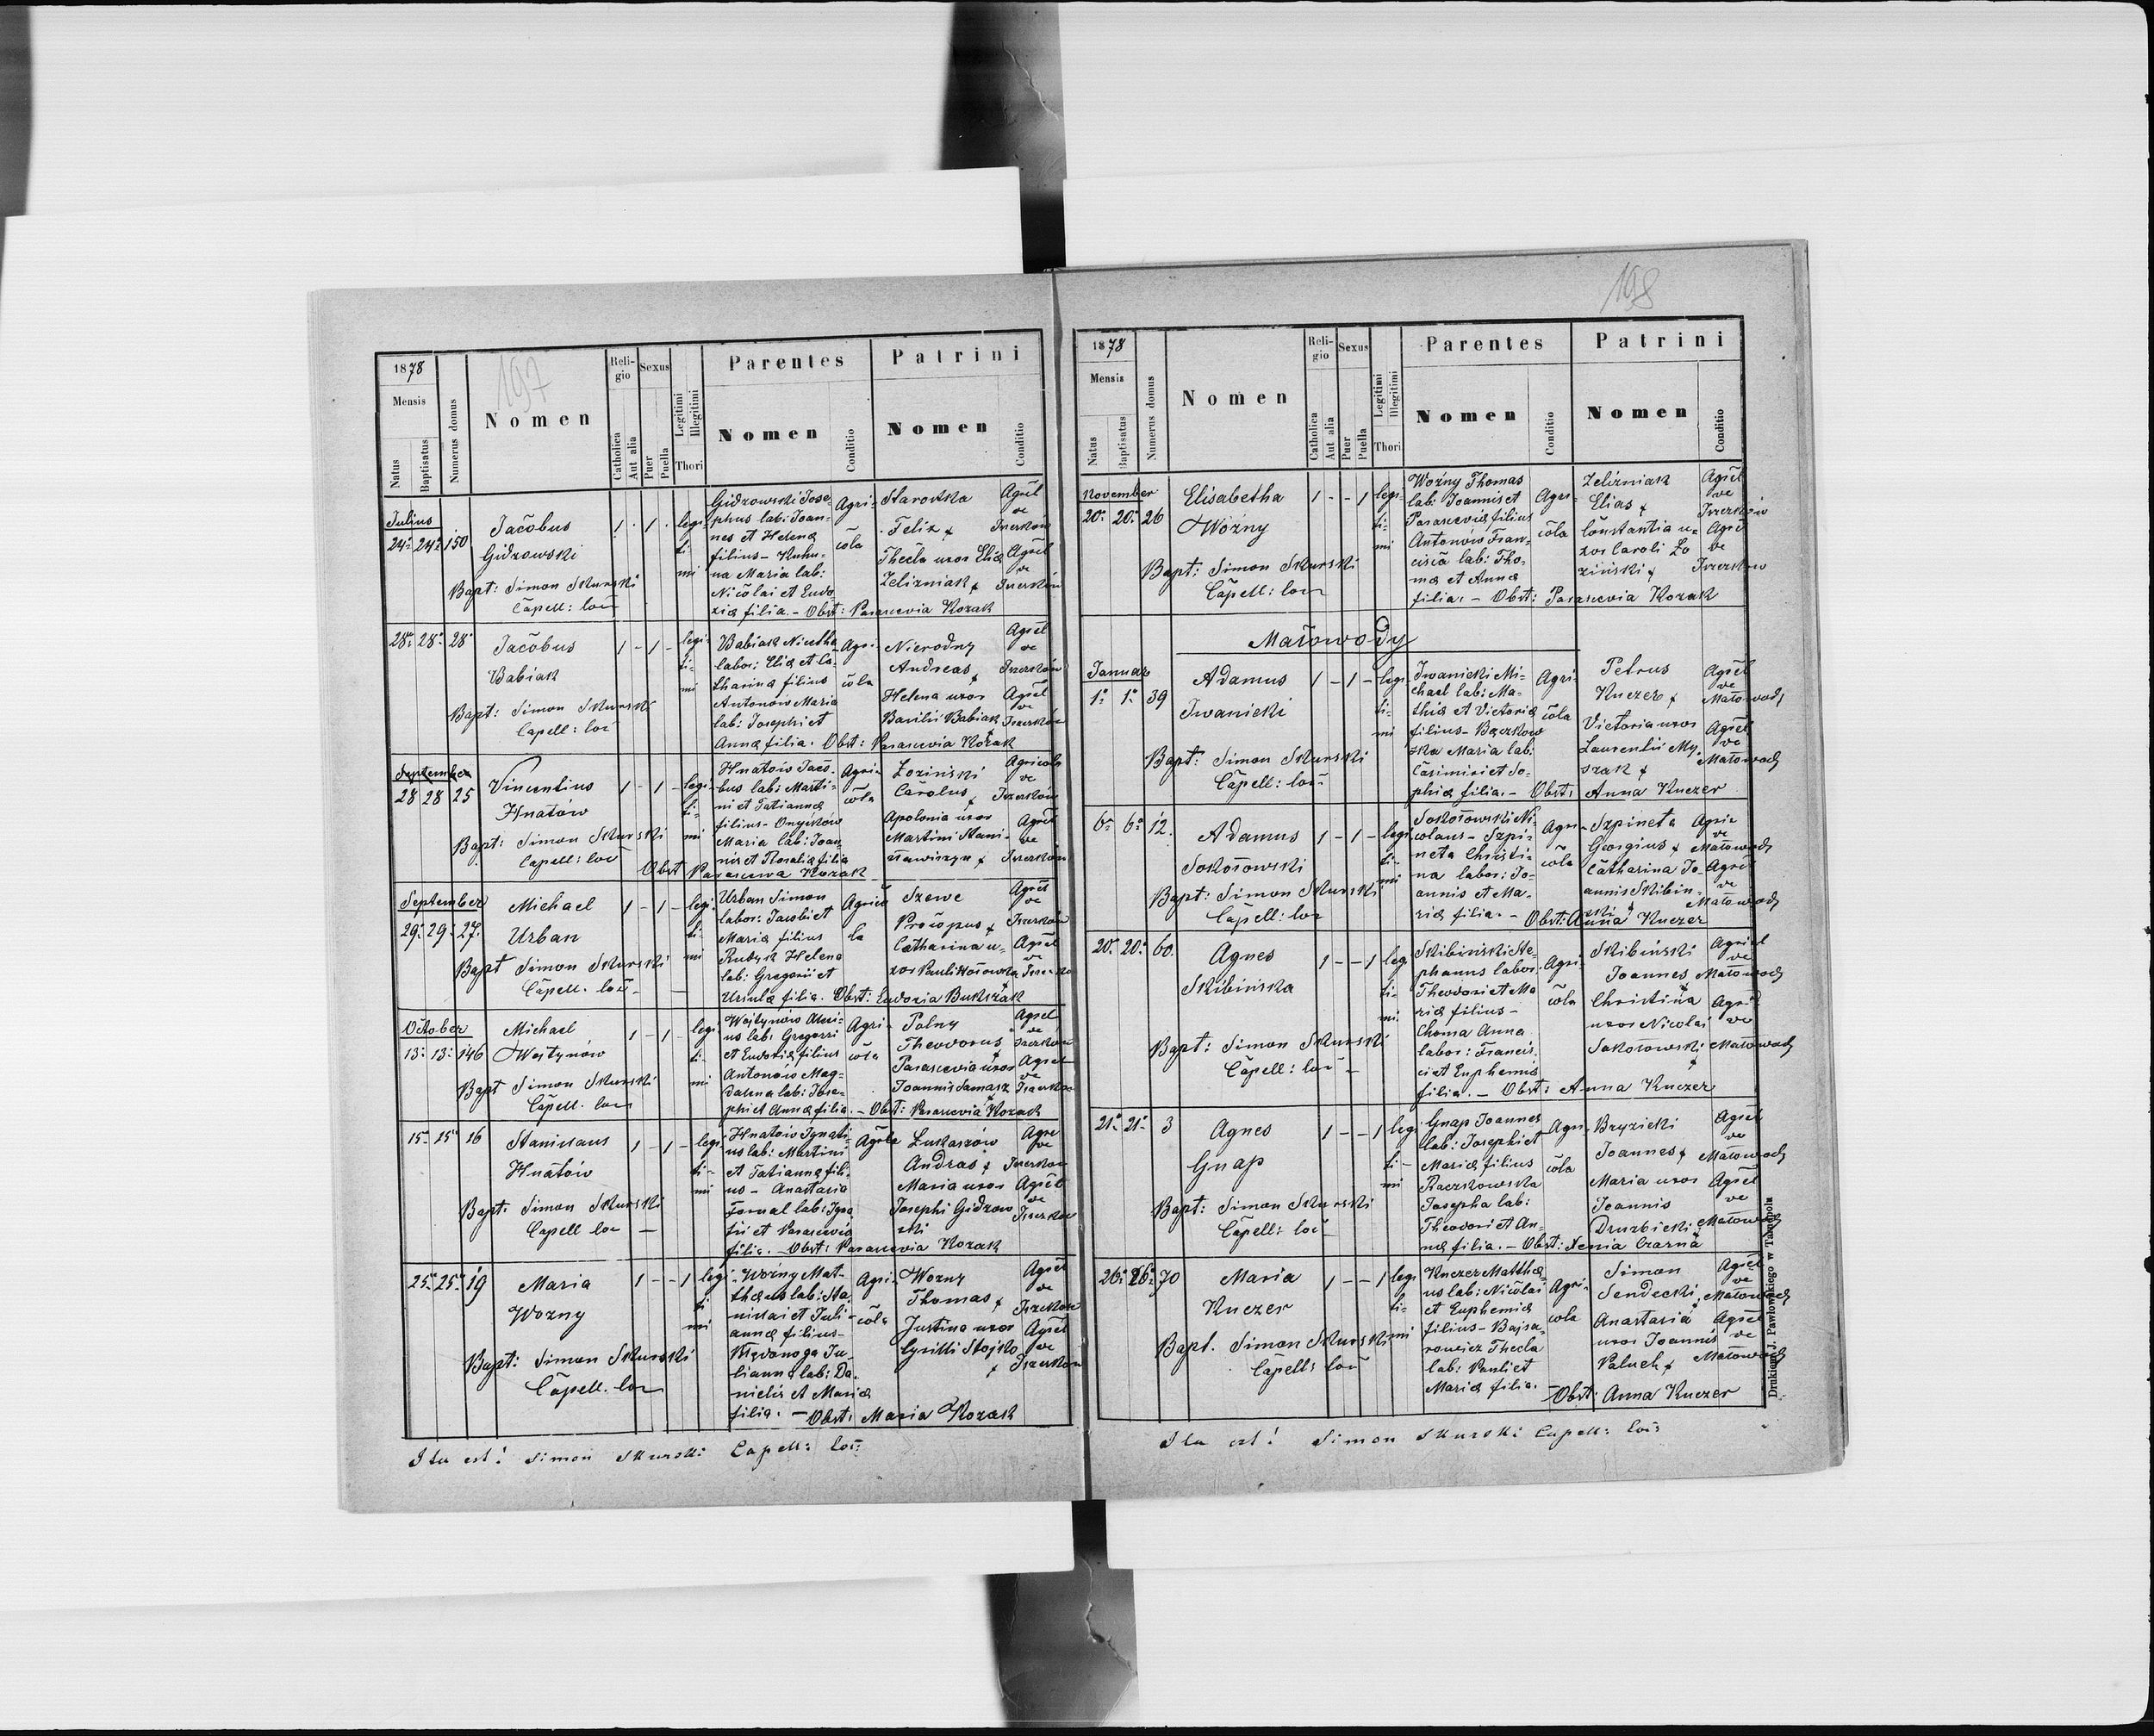 197
1878
Mensis
Natus
Baptisatus
Numerus domus
Nomen
Religio
Catholica
Aut alia
Sexus
Puer
Puella
Legitimi
Illegitimi
Thori
Parentes
Nomen
Conditio
Patrini
Nomen
Conditio
Julius
24a 24a 150
Jacobus
Gidzowski
Bapt: Simon Skurski
Capell: loci
1 · 1 ·
legi-
ti-
mi
Gidzowski Jose-
phus lab: Joan-
nes et Helenæ
filius – Kuhu-
na Maria lab:
Nicolai et Eudo-
xiæ filia. – Obst: Parascevia Kozak
Agri-
cola
Starostka
Felix &
Thecla uxor Eliæ
Zelizniak &
28a 28a 28
Jacobus
Babiak
Bapt: Simon Skurski
Capell: loci
1 - 1 -
legi-
ti-
mi
Babiak Nicetha
labor: Eliæ et Ca-
tharinæ filius
Antonów Maria
lab: Josephi et
Annæ filia. Obst: Parascevia Kozak
Agri-
cola
Nierodny
Andreas &
Helena uxor
Basilii Babiak
September
28 28 25
Vincentius
Hnatów
Bapt: Simon Skurski
Capell: loci
1 - 1 -
legi-
ti-
mi
Hnatów Jaco-
bus lab: Marti-
ni et Tatiannæ
filius –
Maria lab: Joan-
nis et Rosaliæ filia
Obst Parascevia Kozak
Agri-
cola
Łoziński
Carolus &
Apolonia uxor
Martini Stani-
sławiszyn &
September
29. 29. 27.
Michael
Urban
Bapt Simon Skurski
Capell. loci
1 - 1 -
legi-
ti-
mi
Urban Simon
labor: Jacobi et
Mariæ filius
Rudyk Helena
lab: Gregorii et
Ursulæ filia. Obst: Eudoxia Bukszak
Agrico-
la
Szewc
Procopus &
Catharina u-
xor Pauli
October
13. 13. 146
Michael
Wojtynów
Bapt Simon Skurski
Capell. loci
1 - 1 -
legi-
ti-
mi
Wojtynów Alexi-
us lab: Gregorii
et Eudoxiæ filius
Antonów Mag-
dalena lab: Jose-
phi et Annæ filia. – Obst: Parascevia Kozach
Agri-
cola
Polny
Theodorus &
Parascevia uxor
Joannis Samarz
15a 15a 16
Stanislaus
Hnatów
Bapt: Simon Skurski
Capell loci
1 - 1 -
legi-
ti-
mi
Hnatów Ignati-
us lab: Martini
et Tatiannæ fili-
us – Anastasia
Fornal lab: Igna-
tii et Parasceviæ
filia. – Obst: Parascevia Kozak
Łukaszów
Andreas &
Maria uxor
Josephi Gidzow-
ski
25. 25. 19
Maria
Wozny
Bapt: Simon Skurski
Capell. loci
1 - - 1
legi-
ti-
mi
Woźny Mat-
thæus lab: Sta-
nislai et Juli-
annæ filius –
Krywonoga Ju-
lianna lab: Da-
nielis et Mariæ
filia. – Obst: Maria Kozak
Agri-
cola
Wozny
Thomas &
Justina uxor
Cyrilli Stojko
Ita est! Simon Skurski Capell: loci
198
1878
Mensis
Natus
Baptisatus
Numerus domus
Nomen
Religio
Catholica
Aut alia
Sexus
Puer
Puella
Legitimi
Illegitimi
Thori
Parentes
Nomen
Conditio
Patrini
Nomen
Conditio
November
20a 20a 26
Elisabetha
Woźny
Bapt: Simon Skurski
Capell: loci
1 - - 1
legi-
ti-
mi
Woźny Thomas
lab: Joannis et
Parasceviæ filius
Antonów Fran-
cisca lab: Tho-
mæ et Annæ
filia. – Obst: Parascevia Kozak
Agri-
cola
Zelizniak
Elias &
Constantia u-
xor Caroli Ło-
ziński &
Małowody
Januar
1a 1a 39
Adamus
Iwanicki
Bapt: Simon Skurski
Capell: loci
1 - 1 -
legi-
ti-
mi
Iwanicki Mi-
chael lab: Ma-
thiæ et Victoriæ
filius –
Maria lab:
Casimiri et So-
phiæ filia. – Obst: Anna Kuczer
Agri-
cola
Petrus
Kuczer &
Victoria uxor
Laurentii My-
szak &
6a 6a 12.
Adamus
Sokołowski
Bapt: Simon Skurski
Capell: loci
1 - 1 -
legi-
ti-
mi
Sokołowski Ni-
colaus – Szpi-
neta Christi-
na labor: Jo-
annis et Ma-
riæ filia. – Obst: Anna Kuczer
Agri-
cola
Szpineta
Georgius &
Catharina Jo-
annis Skibiń-
ski &
20a 20a 60.
Agnes
Skibińska
Bapt: Simon Skurski
Capell: loci
1 - - 1
legi-
ti-
mi
Skibiński Ste-
phanus labor:
Theodori et Ma-
riæ filius –
Choma Anna
labor: Francis-
ci et Euphemiæ
filia. – Obst: Anna Kuczer
Agri-
cola
Skibiński
Joannes
&
Christina
uxor Nicolai
Sokołowski
21a 21a 3
Agnes
Gnap
Bapt: Simon Skurski
Capell: loci
1 - - 1
legi-
ti-
mi
Gnap Joannes
lab: Josephi et
Mariæ filius
Raczkowska
Josepha lab:
Theodori et An-
næ filia. – Obst: Xenia Czarna
Agri-
cola
Bryzicki
Joannes &
Maria uxor
Joannis
Druzbicki
26a 26a 70
Maria
Kuczer
Bapt. Simon Skurski
Capell: loci
1 - - 1
legi-
ti-
mi
Kuczer Matthæ-
us lab: Nicolai
et Euphemiæ
filius – Bajra-
rowicz Thecla
lab: Pauli et
Mariæ filia. – Obst: Anna Kuczer
Agri-
cola
Simon
Sendecki &
Anastasia
uxor Joannis
Paluch &
Ita est! Simon Skurski Capell: loci
Drukiem J. Pawłowskiego w Tarnopolu